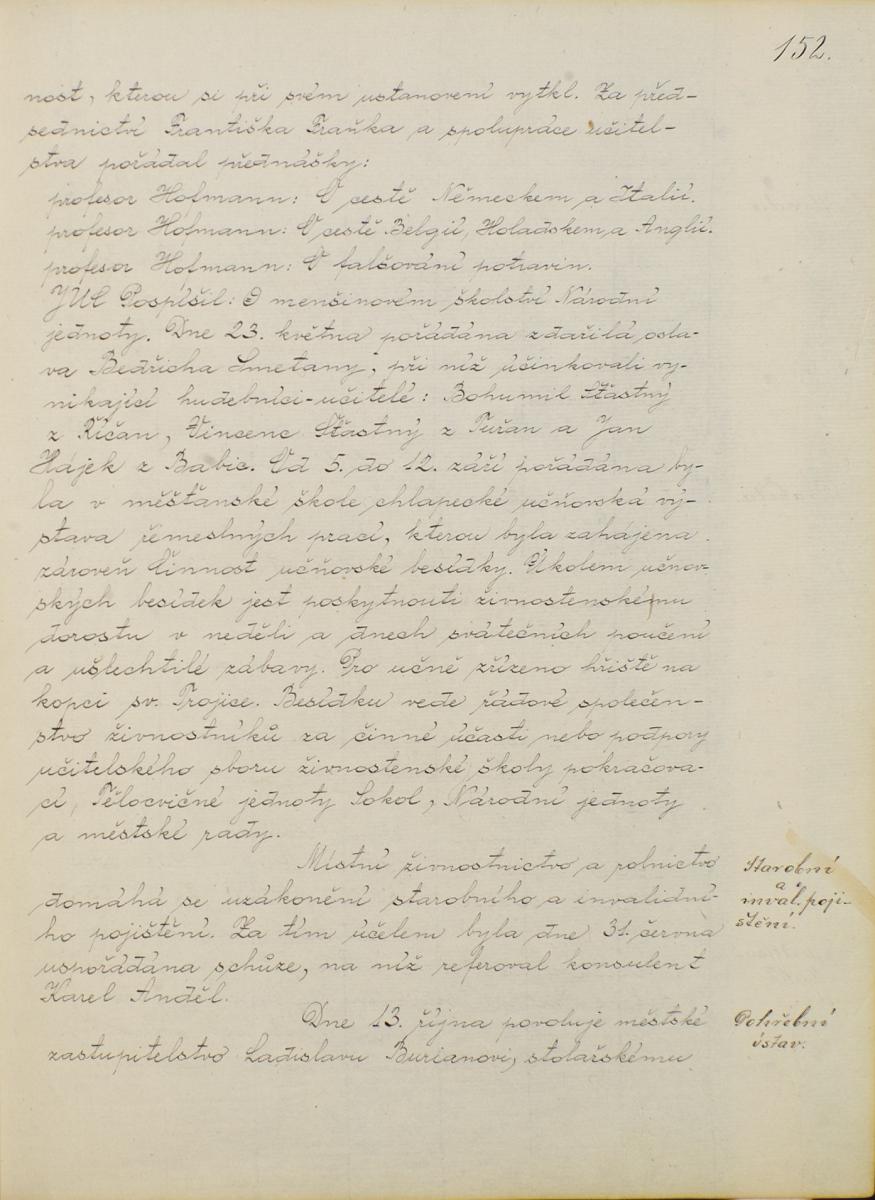 152.
nost, kterou si při svém ustanovení vytkl. Za před-
sednictví Františka Fraňka a spolupráce učitel-
stva pořádal přednášky:
profesor Hofmann: O cestě Německem a Italií.
profesor Hofmann: O cestě Belgií, Holadskem, a Anglií.
profesor Hofmann: O falšování potravin.
JUC Pospíšil: O menšinovém školství Národní
jednoty. Dne 23. května pořádána zdařilá osla-
va Bedřicha Smetany, při níž účinkovali vy-
nikající hudebníci-učitelé: Bohumil Šťastný
z Říčan, Vincenc Šťastný z Tuřan a Jan
Hájek z Babic. Od 5. do 12. září pořádána by-
la v měšťanské škole chlapecké učňovská vý-
stava řemeslných prací, kterou byla zahájena
zároveň činnost učňovské besídky. Úkolem učňov-
ských besídek jest poskytnouti živnostenskému
dorostu v neděli a dnech svátečních poučení
a ušlechtilé zábavy. Pro učně zřízeno hřiště na
kopci sv. Trojice. Besídku vede řádové společen-
stvo živnostníků za činné účasti nebo podpory
učitelského sboru živnostenské školy pokračova-
cí, Tělocvičné jednoty Sokol, Národní jednoty
a městské rady.
Místní živnostnictvo a rolnictvo
domáhá se uzákonění starobního a invalidní-
ho pojištění. Za tím účelem byla dne 31. června
uspořádána schůze, na níž referoval konsulent
Karel Anděl.
Starobní
a
inval. poji-
štění.
Dne 13. října povoluje městské
zastupitelstvo Ladislavu Burianovi, stolařskému
Pohřební
ústav.